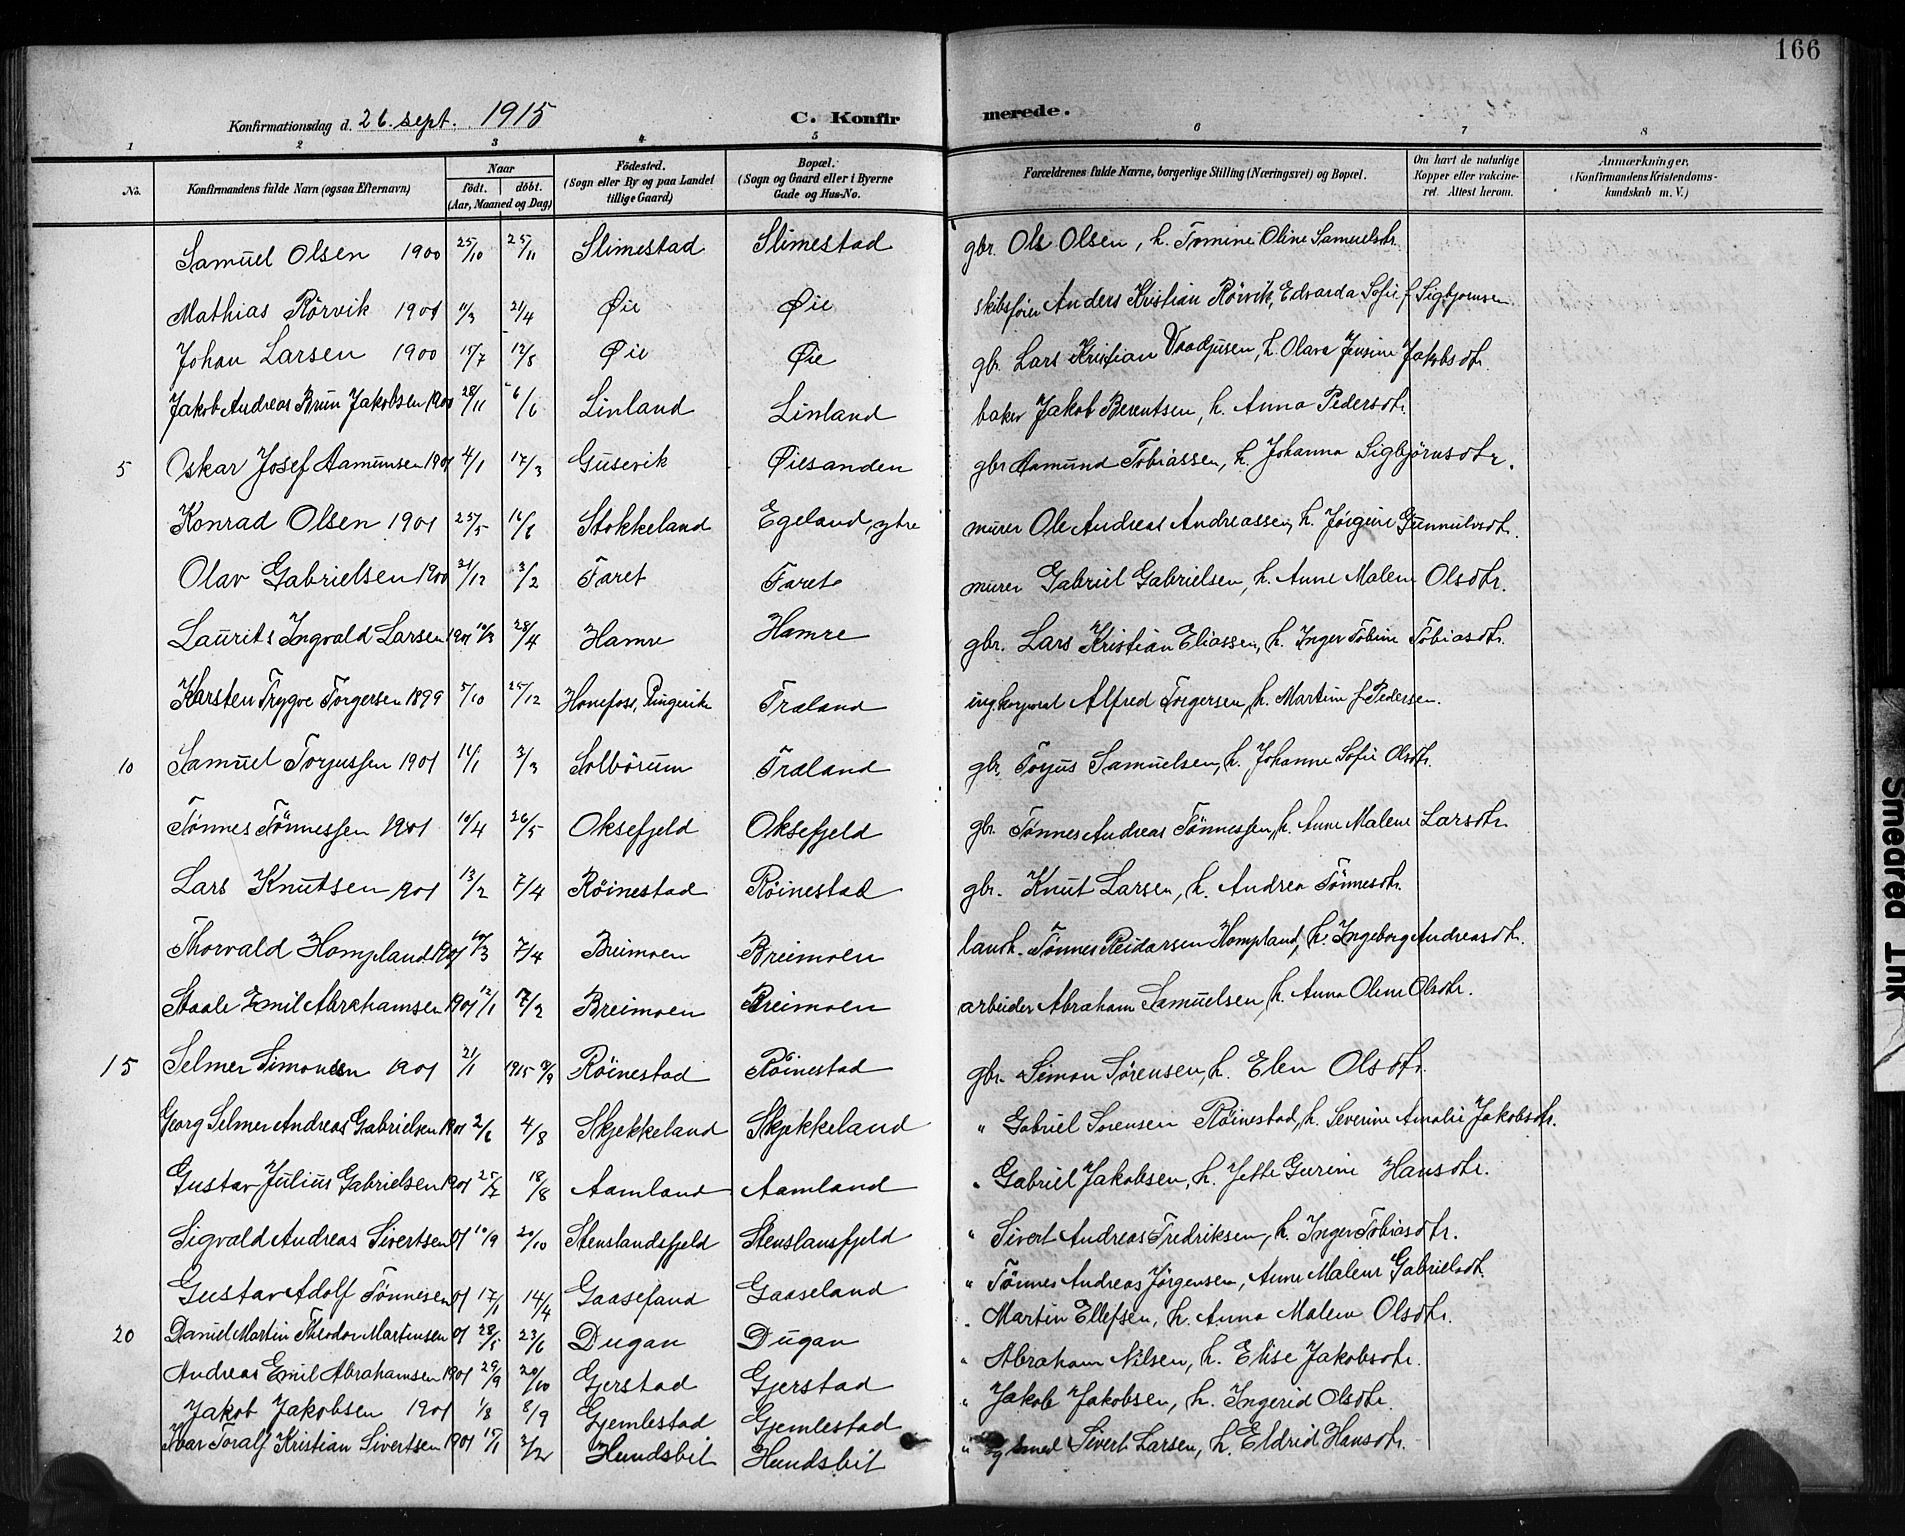 166
Konfirmationsdag d. 26. sept. 1915 C. Konfir merede.
1 2 3 4 5 6 7 8
No. Konfirmandens fulde Navn (ogsaa Efternavn) Naar født. døbt. (Aar, Maaned og Dag) Fødested. (Sogn eller By og paa Landet tillige Gaard) Bopæl. (Sogn og Gaard eller i Byerne Gade og Hus-No. Forældrenes fulde Navne, borgerlige Stilling (Næringsvei) og Bopæl. Om havt de naturlige Kopper eller vakcineret. Attest herom. Anmærkninger. (Konfirmandens Kristendomskundskab m. V.)
Samuel Olsen 1900 25/10 25/11 Slimestad Slimestad gbr. Ole Olsen, h. Tomine Oline Samuelsdtr.
Mathias Rörvik 1901 11/3 21/4 Øie Øie skibsfører Anders Kristian Rörvik, Edvarda Sofie f. Sigbjørnsen
Johan Larsen 1900 15/7 12/8 Øie Øie gbr. Lars Kristian Vaadjusen, h. Olava Jensine Jakobsdtr.
Jakob Andreas Brun Jakobsen 1900 28/11 6/6 Linland Linland baker Jakob Berentsen, h. Anna Pedersdtr.
5 Oskar Josef Aamunsen 1901 4/1 17/3 Gusevik Øiesanden gbr Aamund Tobiassen, h. Johanna Sigbjørnsdtr.
Konrad Olsen 1901 25/5 16/6 Stokkeland Egeland, ytre murer Ole Andreas Andreassen, h. Jørgine Gunnulvsdtr.
Olav Gabrielsen 1900 21/12 3/2 Faret Faret murer Gabriel Gabrielsen, h. Anne Malene Olsdtr.
Laurits Ingvald Larsen 1901 10/3 28/4 Hamre Hamre gbr. Lars Kristian Eliassen, h. Inger Tobine Tobiasdtr.
Karsten Trygve Torgersen 1899 5/10 25/12 Hønefoss, Ringerike Træland Alfred Torgersen, h. Martine f Pedersen.
10 Samuel Torjussen 1901 16/1 3/3 Solbörum Træland gbr. Torjus Samuelsen, h. Johanne Sofie Olsdtr.
Tønnes Tönnessen 1901 10/4 26/5 Oksefjeld Oksefjeld gbr. Tønnes Andreas Tönnessen, h. Anne Malene Larsdtr.
Lars Knutsen 1901 13/2 7/4 Röinestad Röinestad gbr. Knut Larsen, h. Andrea Tönnesdtr.
Thorvald Hompland 1901 10/3 7/4 Breimoen Breimoen landh. Tønnes Reidarsen Hompland, h. Ingeborg Andreasdtr.
Staale Emil Abrahamsen 1901 12/1 7/2 Breimoen Breimoen arbeider Abraham Samuelsen, h. Anna Oline Olsdtr.
15 Selmer Simonsen 1901 21/1 1915 Röinestad Röinestad gbr. Simon Sørensen, h. Elen Olsdtr.
Georg Selmer Andreas Gabrielsen 1901 2/6 4/8 Skjekkeland Skjekkeland " Gabriel Sørensen Röinestad, h. Severine Amalie Jakobsdtr.
Gustav Julius Gabrielsen 1901 25/7 18/8 Aamland Aamland " Gabriel Jakobsen, h. Jette Gurine Hansdtr.
Sigvald Andreas Sivertsen 01 10/9 20/10 Stenslandsfjeld Stenslansfjeld " Sivert Andreas Fredriksen, h. Inger Tobiasdtr.
Gustav Adolf Tönnesen 01 17/1 14/4 Gaaseland Gaaseland " Tönnes Andreas Jørgensen, Anne Malene Gabrielsdtr.
20 Daniel Martin Theodor Martinsen 01 28/5 23/6 Dugan Dugan " Martin Ellefsen, h. Anna Malene Olsdtr.
Andreas Emil Abrahamsen 1901 29/9 20/10 Gjerstad Gjerstad " Abraham Nilsen, h. Elise Jakobsdtr.
Jakob Jakobsen 1901 1/8 8/9 Gjemlestad Gjemlestad " Jakob Jakobsen, h. Ingerid Olsdtr.
Ivar Toralf Kristian Sivertsen 1901 15/1 2/2 Hundsbit Hundsbit " og smed Sivert Larsen, h. Eldrid Hansdtr.
Smeared Ink